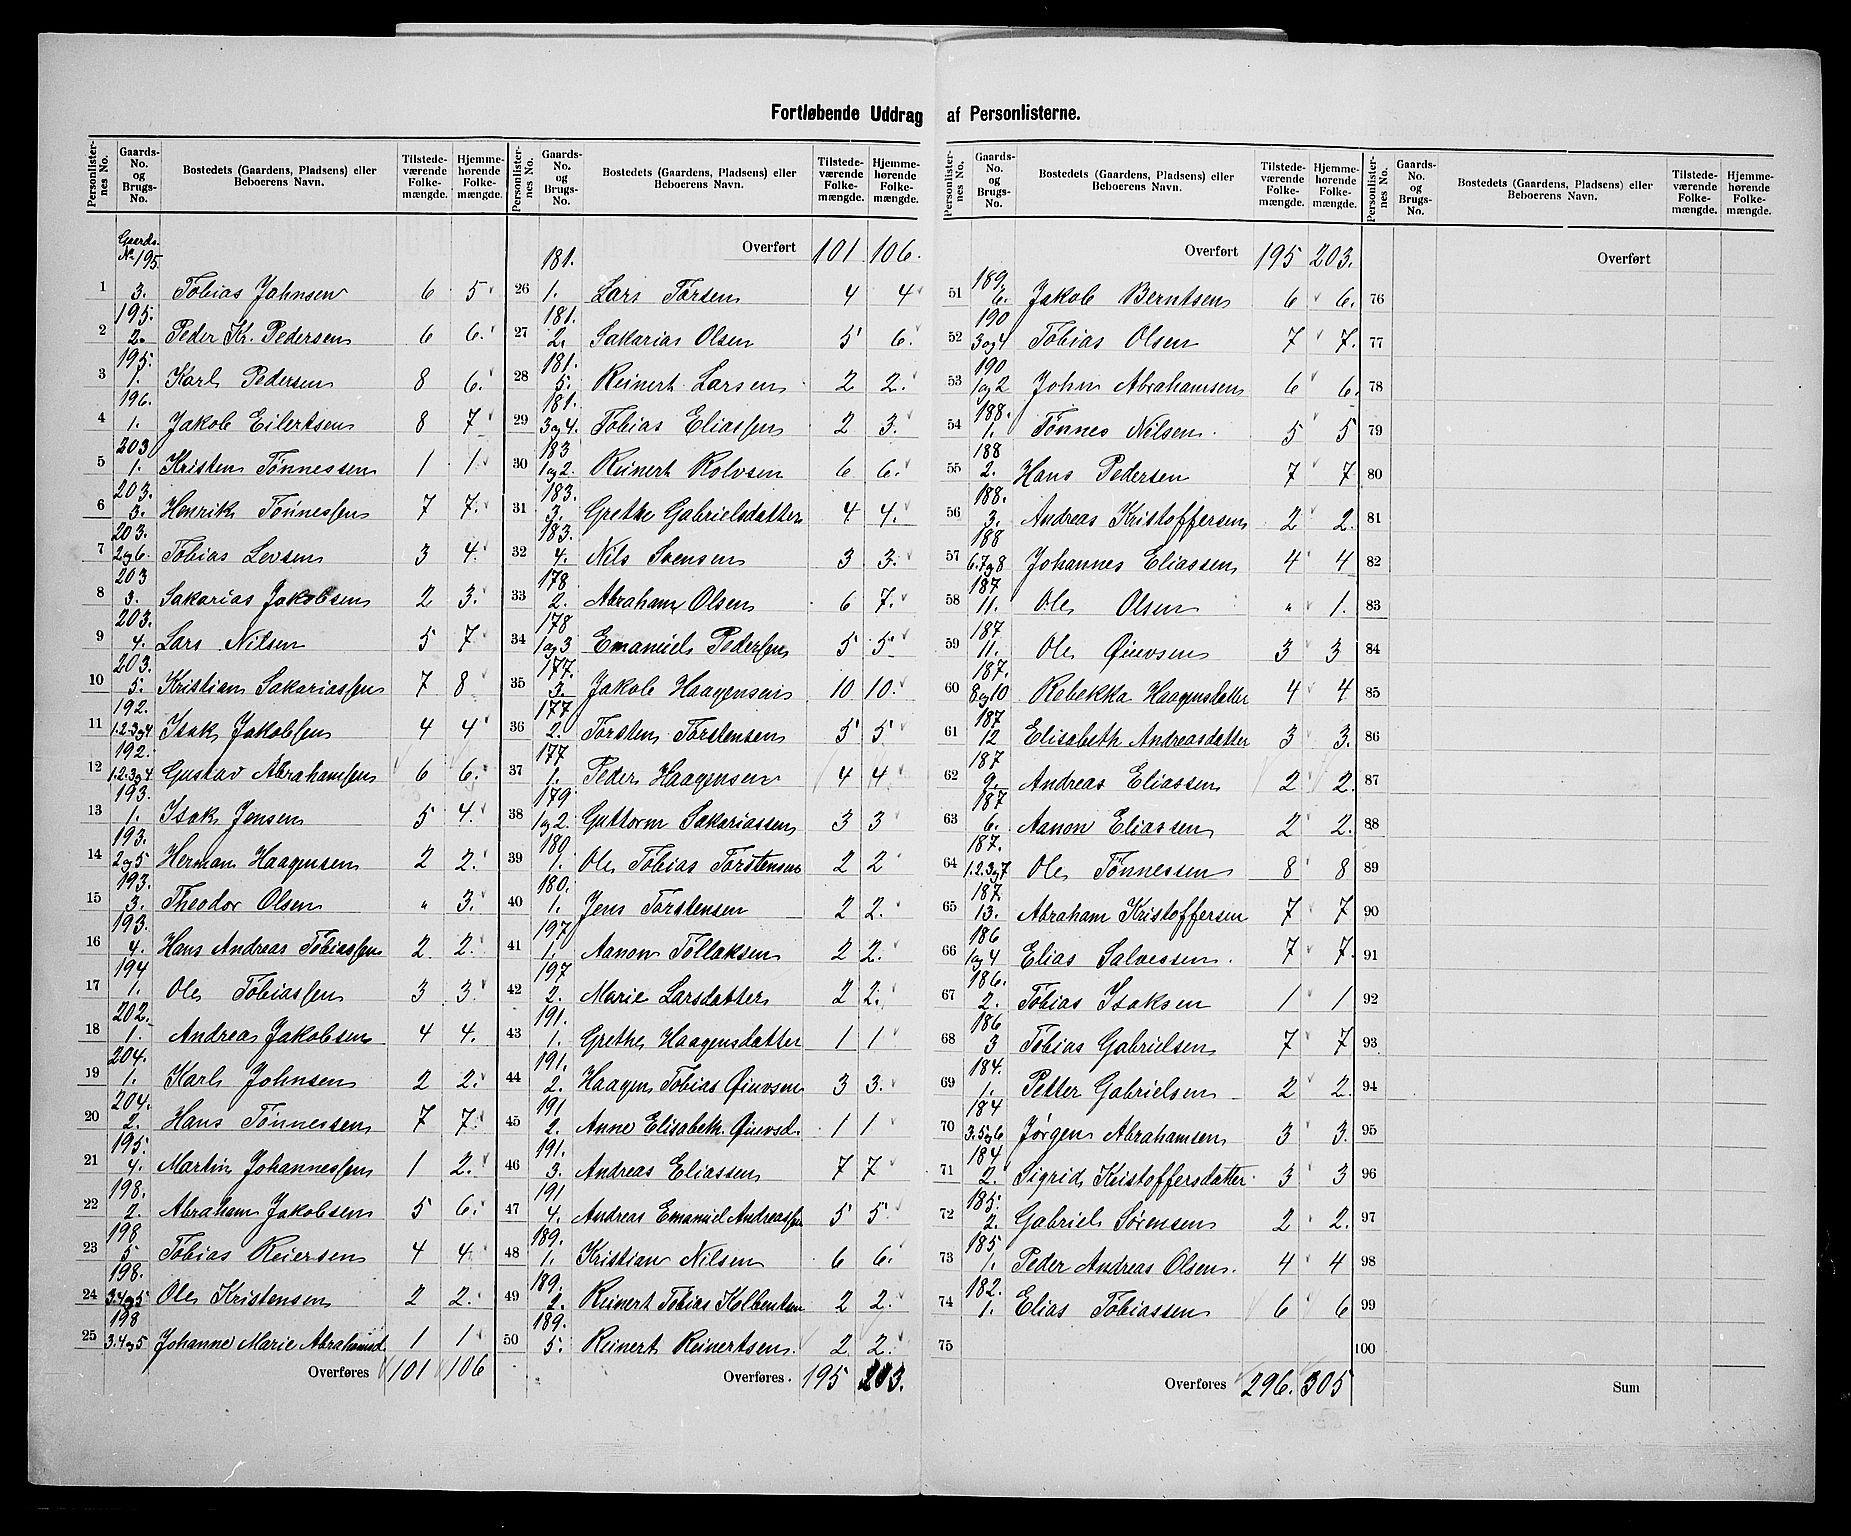 Fortløbende Uddrag af Personlisterne.
Personlister-nes No. | Gaards-No. og Brugs-No. | Bostedets (Gaardens, Pladsens) eller Beboerens Navn. | Tilstede-værende Folke-mængde. | Hjemme-hørende Folke-mængde.
Gaards-No 195.
1 | 3. | Tobias Johnsen | 6 | 5
2 | 195. 2. | Peder Kr. Pedersen | 6 | 6.
3 | 195. 1. | Karl Pedersen | 8 | 6.
4 | 196. 1. | Jakob Eilertsen | 8 | 7
5 | 203 1. | Kristen Tønnessen | 1 | 1
6 | 203. 3. | Henrik Tønnessen | 7 | 7.
7 | 203. 2og6. | Tobias Levsen | 3 | 4.
8 | 203 3. | Sakarias Jakobsen | 2 | 3.
9 | 203. 4. | Lars Nilsen | 5 | 7
10 | 203. 5. | Kristian Sakariassen | 7 | 8
11 | 192. 1.2.3og4 | Isak Jakobsen | 4 | 4
12 | 192. 1.2.3og4 | Gustav Abrahamsen | 6 | 6.
13 | 193. 1. | Isak Jensen | 5 | 4.
14 | 193. 2og5 | Herman Haagensen | 2 | 2.
15 | 193. 3. | Theodor Olsen | " | 3.
16 | 193. 4. | Hans Andreas Tobiassen | 2 | 2.
17 | 194 1. | Ole Tobiassen | 3 | 3.
18 | 202. 1. | Andreas Jakobsen | 4 | 4.
19 | 204. 1. | Karl Johnsen | 2 | 2.
20 | 204. 2. | Hans Tønnessen | 7 | 7.
21 | 195. 4. | Martin Johannessen | 1 | 2.
22 | 198. 2. | Abraham Jakobsen | 5 | 6.
23 | 198 5 | Tobias Reiersen | 4 | 4.
24 | 198. 3.4og5 | Ole Kristensen | 2 | 2.
25 | 198 3.4og5 | Johanne Marie Abrahamsd. | 1 | 1
Overføres 101 106
Personlister-nes No. | Gaards-No. og Brugs-No. | Bostedets (Gaardens, Pladsens) eller Beboerens Navn. | Tilstede-værende Folke-mængde. | Hjemme-hørende Folke-mængde.
Overført 101 106.
26 | 181. 1. | Lars Torsen | 4 | 4
27 | 181. 2. | Sakarias Olsen | 5 | 6.
28 | 181. 5. | Reinert Larsen | 2 | 2.
29 | 181. 3og4. | Tobias Eliassen | 2 | 3.
30 | 183 1og2. | Reinert Rolvsen | 6 | 6.
31 | 183. 3. | Grethe Gabrielsdatter | 4 | 4.
32 | 183. 4. | Nils Svensen | 3 | 3.
33 | 178 2. | Abraham Olsen | 6 | 7.
34 | 178 1og3 | Emanuel Pedersen | 5 | 5
35 | 177. 3. | Jakob Haagensen | 10 | 10.
36 | 177 2. | Torsten Torstensen | 5 | 5
37 | 177 1. | Peder Haagensen | 4 | 4
38 | 179 1og2. | Guttorm Sakariassen | 3 | 3
39 | 180 1. | Ole Tobias Torstensen | 2 | 2
40 | 180. 1. | Jens Torstensen | 2 | 2.
41 | 197 1. | Aanon Tollaksen | 2 | 2.
42 | 197 2. | Marie Larsdatter | 2 | 2.
43 | 191. 1. | Grethe Haagensdatter | 1 | 1
44 | 191. 2. | Haagen Tobias Øiuvsen | 3 | 3.
45 | 191 2. | Anne Elisabeth Øiuvsd. | 1 | 1
46 | 191. 3. | Andreas Eliassen | 7 | 7
47 | 191 4. | Andreas Emanuel Andreassen | 5 | 5
48 | 189. 1. | Kristian Nilsen | 6 | 6.
49 | 189. 2. | Reinert Tobias Kolbentsen | 2 | 2.
50 | 189. 5. | Reinert Reinertsen. | 2 | 2.
Overføres 195 203.
Personlister-nes No. | Gaards-No. og Brugs-No. | Bostedets (Gaardens, Pladsens) eller Beboerens Navn. | Tilstede-værende Folke-mængde. | Hjemme-hørende Folke-mængde.
Overført 195 203.
51 | 189. 6. | Jakob Berntsen | 6 | 6.
52 | 190 3og4 | Tobias Olsen | 7 | 7.
53 | 190 1og2 | John Abrahamsen | 6 | 6.
54 | 188. 1. | Tønnes Nilsen. | 5 | 5
55 | 188 2. | Hans Pedersen | 7 | 7
56 | 188. 3. | Andreas Kristoffersen | 2 | 2.
57 | 188 6.7og8 | Johannes Eliassen | 4 | 4
58 | 187. 11. | Ole Olsen | " | 1.
59 | 187. 11. | Ole Øiuvsen | 3 | 3
60 | 187. 8og10 | Rebekka Haagensdatter | 4 | 4
61 | 187 12 | Elisabeth Andreasdatter | 3 | 3.
62 | 187 9. | Andreas Eliassen | 2 | 2.
63 | 187 6. | Aanon Eliassen | 2 | 2.
64 | 187. 1.2.3og7 | Ole Tønnessen | 8 | 8
65 | 187. 13. | Abraham Kristoffersen | 7 | 7
66 | 186 1og4 | Elias Salvessen. | 7 | 7.
67 | 186. 2. | Tobias Isaksen | 1 | 1
68 | 186 3 | Tobias Gabrielsen | 7 | 7
69 | 184. 1. | Petter Gabrielsen | 2 | 2.
70 | 184 3.5og6 | Jørgen Abrahamsen | 3 | 3.
71 | 184 2. | Sigrid Kristoffersdatter. | 3 | 3
72 | 185. 2. | Gabriel Sørensen | 2 | 2.
73 | 185 1. | Peder Andreas Olsen. | 4 | 4
74 | 182. 1. | Elias Tobiassen | 6 | 6
75
Overføres 296. 305
Personlister-nes No. | Gaards-No. og Brugs-No. | Bostedets (Gaardens, Pladsens) eller Beboerens Navn. | Tilstede-værende Folke-mængde. | Hjemme-hørende Folke-mængde.
Overført
76
77
78
79
80
81
82
83
84
85
86
87
88
89
90
91
92
93
94
95
96
97
98
99
100
Sum